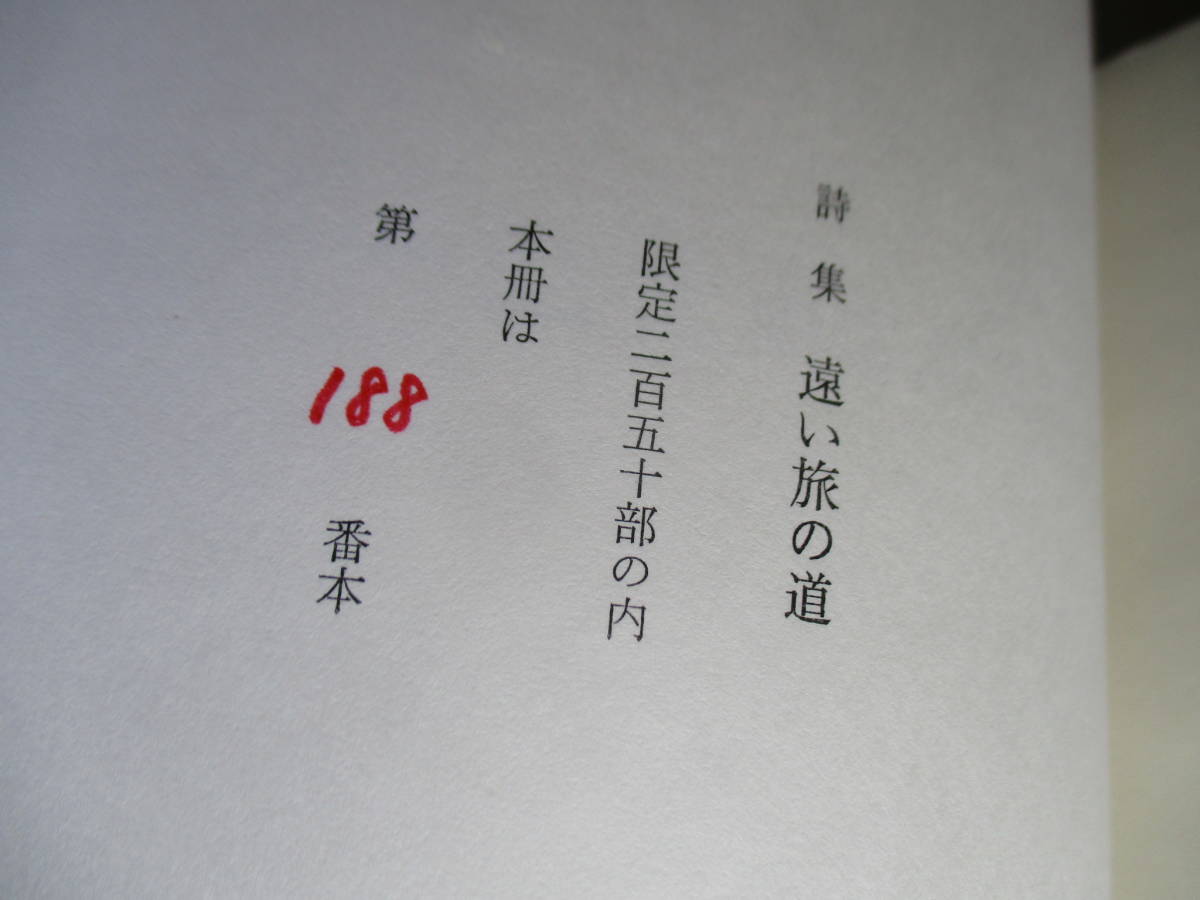 詩集 遠い旅の道
限定二百五十部の内
本冊は
第 188 番本